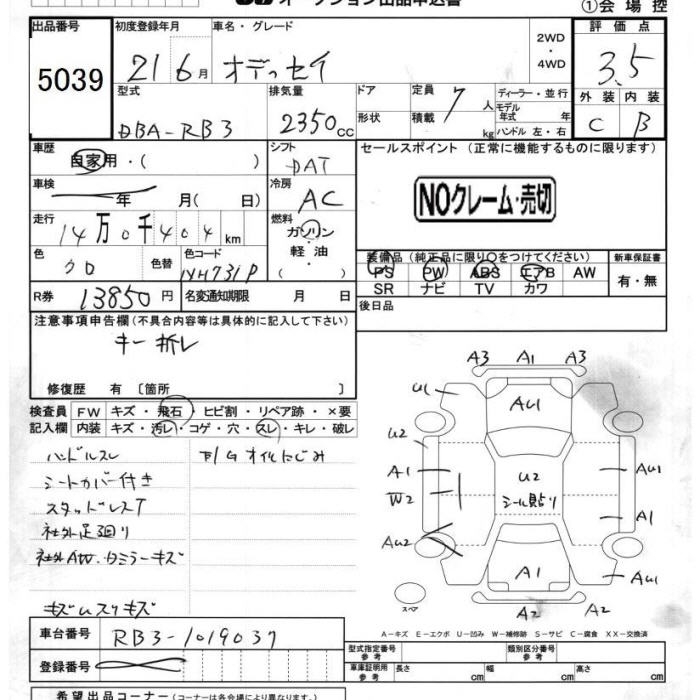 オークション出品申込書
①会場控
出品番号 初度登録年月 車名・グレード 2WD・4WD 評価点
5039 21 6月 オデッセイ 3.5
型式 排気量 ドア形状 定員 7人 積載 kg ディーラー・並行 モデル年式 年 ハンドル 左・右 外装 内装
DBA-RB3 2350cc C B
車歴 自家用・( ) シフト DAT セールスポイント (正常に機能するものに限ります)
車検 年 月( 日) 冷房 AC NOクレーム・売切
走行 14万0千404km 燃料 ガソリン・軽油・( )
色 クロ 色替 色コード NH731P 装備品 (純正品に限り○をつけてください) 新車保証書
PS PW ABS エアB AW 有・無
SR ナビ TV カワ
R券 13850円 名変通知期限 月 日 後日品
注意事項申告欄(不具合内容等は具体的に記入して下さい)
キー折レ
修復歴 有 〔箇所 〕
検査員 FW キズ・飛石・ヒビ割・リペア跡・×要
記入欄 内装 キズ・汚レ・コゲ・穴・スレ・キレ・破レ
ハンドルスレ 下/Gオイルにじみ
シートカバー付き
スタッドレスT
社外足廻り
社外AW・ロミラーキズ
キズムスリキズ
A3 A1 A3
U1 AU1
U2
A1 U2 AU1
W2 シール貼り
A1
AU2
A1 AU1
スペア A2 A2
A-キズ E-エクボ U-凹み W-補修跡 S-サビ C-腐食 XX-交換済
車台番号 RB3-1019037
登録番号
型式指定番号 参考 類別区分番号 参考
車庫証明用 参考 長さ cm 幅 cm 高さ cm
希望出品コーナー(コーナーは各会場により異なります。)